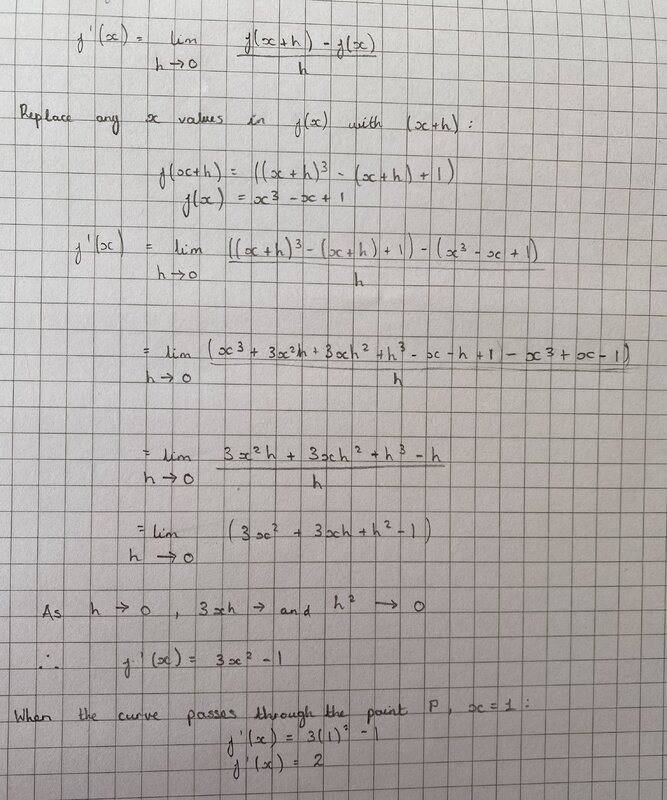 f'(x) = lim h→0 (f(x+h) - f(x))/h
Replace any x values in f(x) with (x+h) :
f(x+h) = ((x+h)³ - (x+h) + 1)
f(x) = x³ - x + 1
f'(x) = lim h→0 (((x+h)³ - (x+h) + 1) - (x³ - x + 1))/h
= lim h→0 (x³ + 3x²h + 3xh² + h³ - x - h + 1 - x³ + x - 1)/h
= lim h→0 (3x²h + 3xh² + h³ - h)/h
= lim h→0 (3x² + 3xh + h² - 1)
As h → 0 , 3xh → and h² → 0
∴ f'(x) = 3x² - 1
When the curve passes through the point P, x = 1 :
f'(x) = 3(1)² - 1
f'(x) = 2